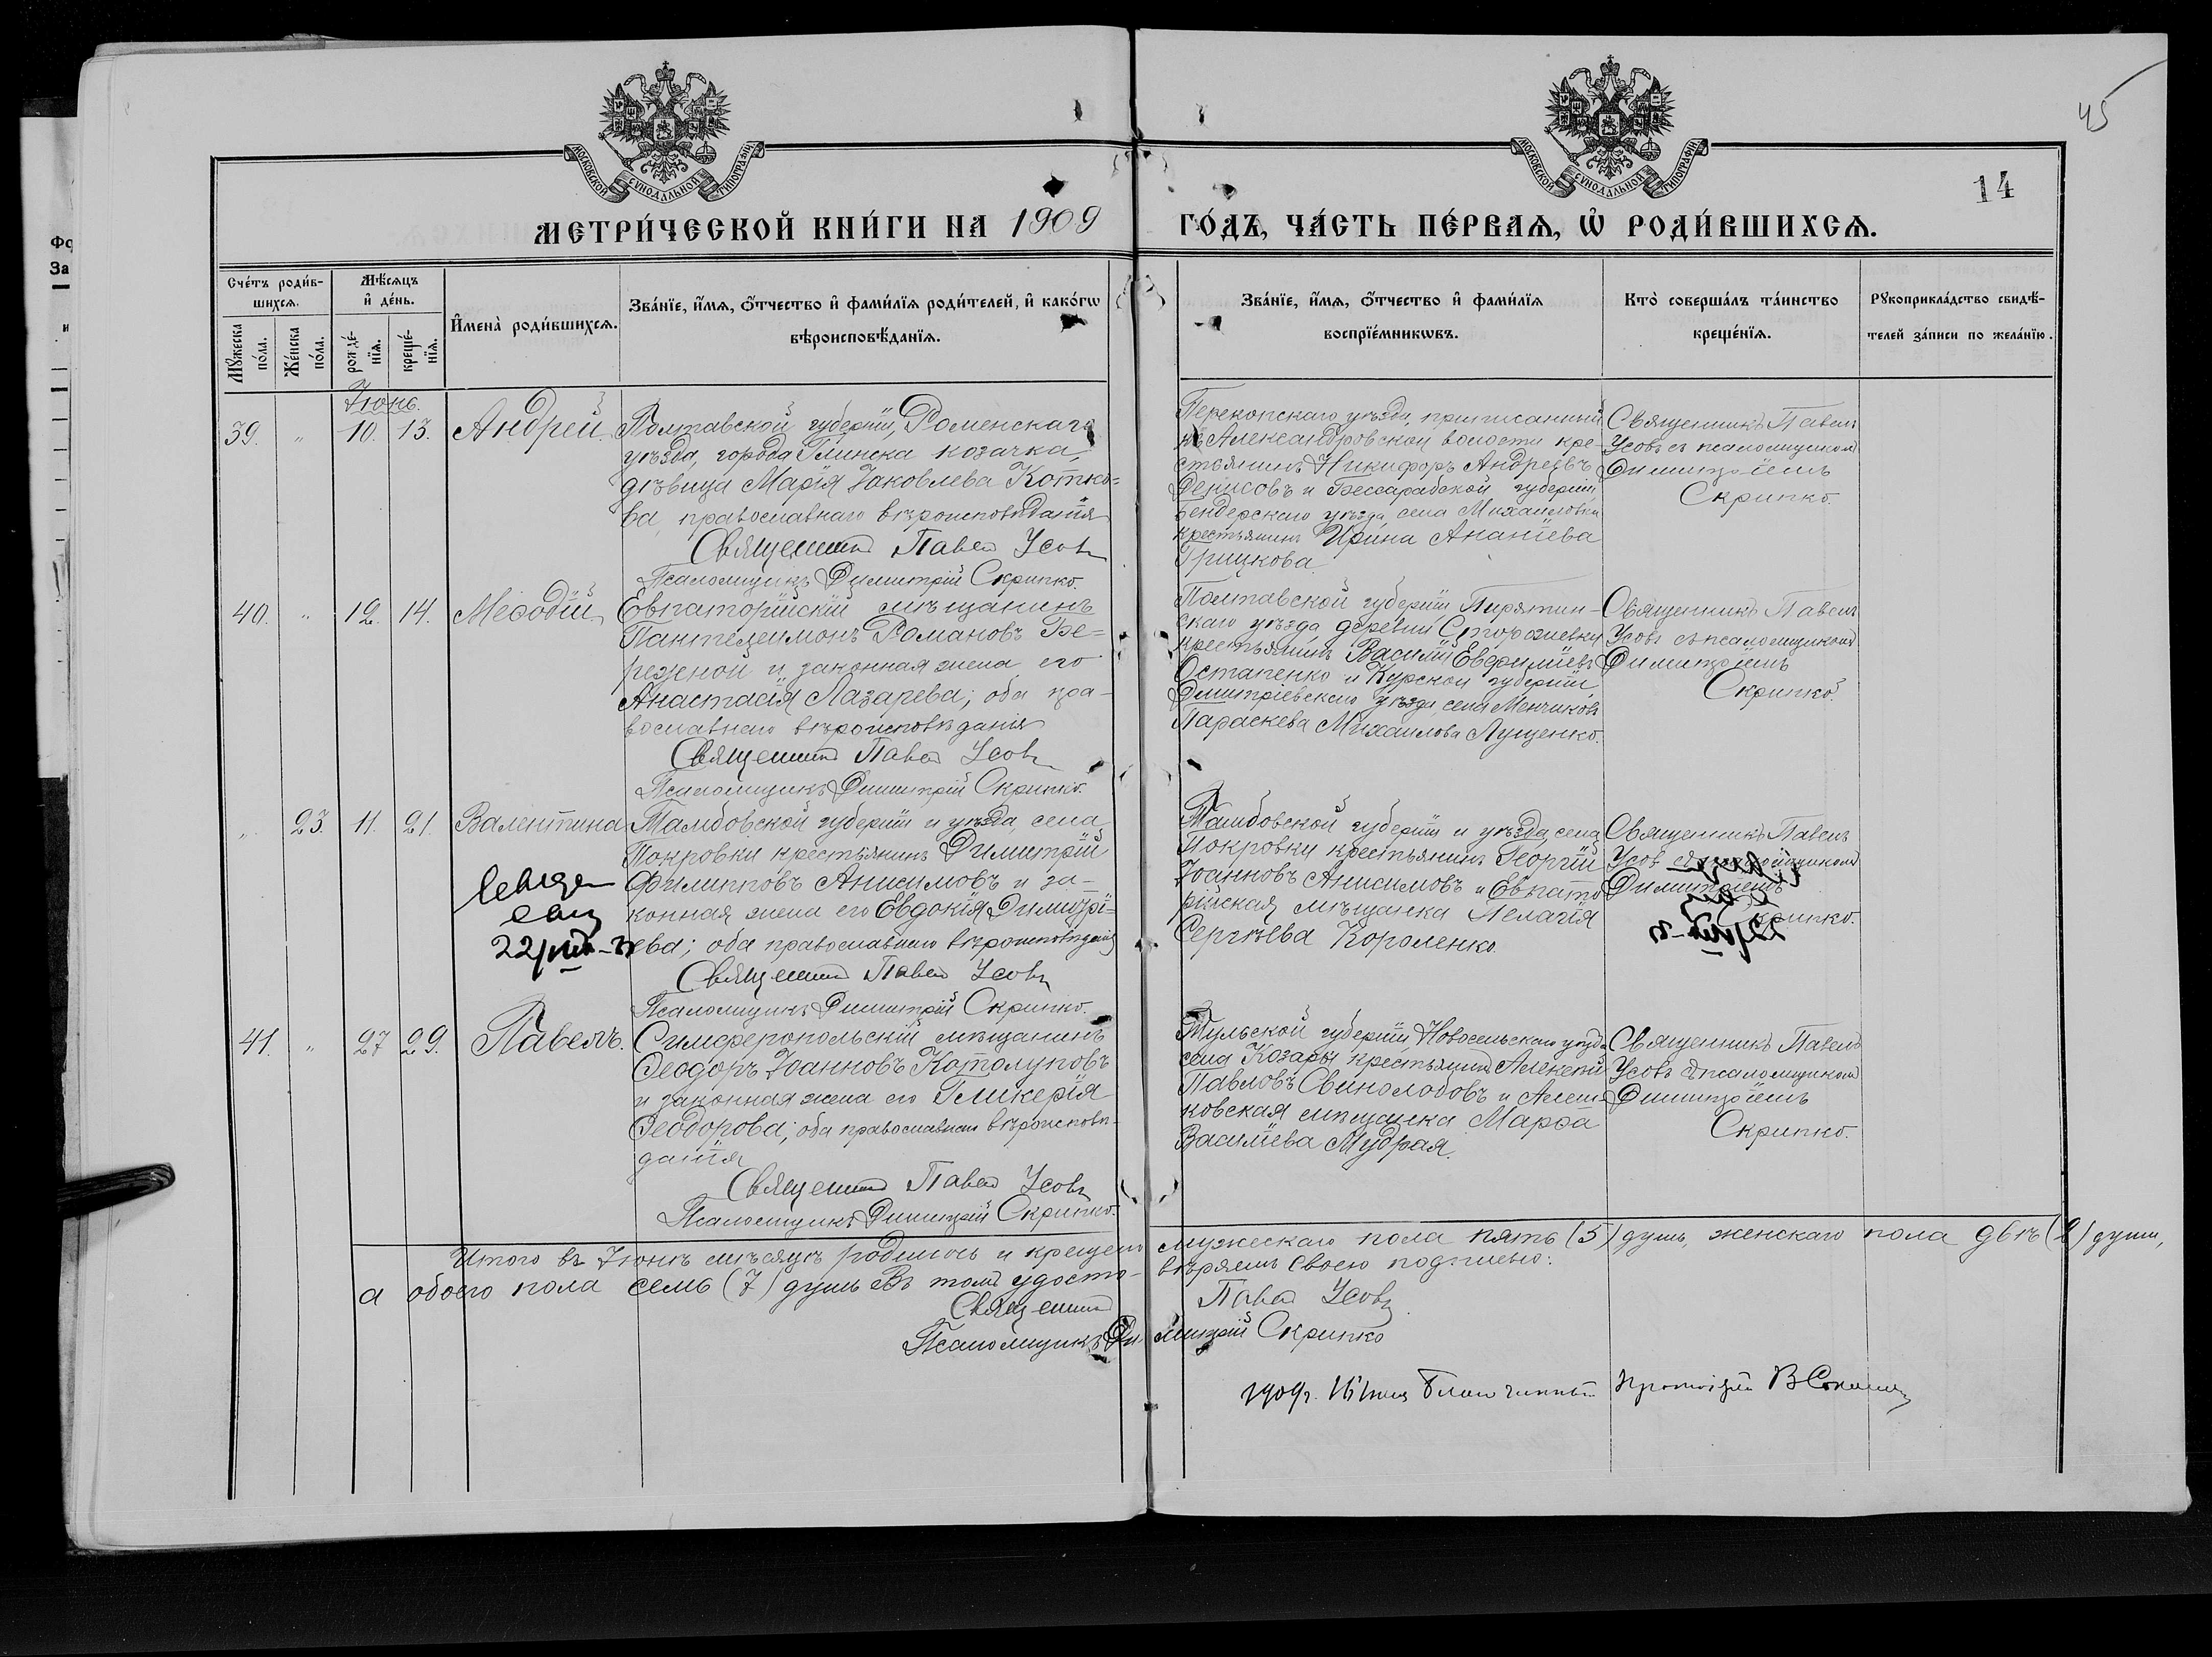 45
14
МОСКОВСКОЙ СѴНОДАЛЬНОЙ ТИПОГРАФІИ
МОСКОВСКОЙ СѴНОДАЛЬНОЙ ТИПОГРАФІИ
МЕТРИ́ЧЕСКОЙ КНИ́ГИ НА 1909
ГО́ДЪ, ЧА́СТЬ ПЕ́РВАѦ, Ѽ РОДИ́ВШИХСѦ.
Фо
За
Сче́тъ роди́в-
шихсѧ.
Мꙋ́жеска по́ла.
Же́нска по́ла.
Мѣ́сѧцъ
и҆ де́нь.
рожде́-
нїѧ.
креще́-
нїѧ.
И҆мена̀ роди́вшихсѧ.
Зва́нїе, и҆́мѧ, ѻ҆́тчество и҆ фами́лїѧ роди́телей, и҆ како́гѡ
вѣроисповѣ́данїѧ.
Зва́нїе, и҆́мѧ, ѻ҆́тчество и҆ фами́лїѧ
воспрїе́мникѡвъ.
Кто̀ соверша́лъ та́инство
креще́нїѧ.
Рꙋкоприкла́дство свидѣ́-
телей за́писи по жела́нїю.
Іюнь.
39. " 10. 13. Андрей.
Полтавской губерніи, Роменскаго
уѣзда, города Глинска козачка,
дѣвица Марія Іаковлева Котко-
ва, православнаго вѣроисповѣданія
Священникъ Павелъ Усовъ
Псаломщикъ Димитрій Скрипко.
Перекопскаго уѣзда, приписанный
къ Александровской волости кре-
стьянинъ Никифоръ Андреевъ
Денисовъ и Бессарабской губерніи
Бендерскаго уѣзда, села Михайловки
крестьянинъ Ирина Ананіева
Грицкова.
Священникъ Павелъ
Усовъ съ псаломщикомъ
Димитріемъ
Скрипко.
40. " 12. 14. Меѳодій
Евпаторійскій мѣщанинъ
Пантелеимонъ Романовъ Бе-
режной и законная жена его
Анастасія Лазарева; оба пра-
вославнаго вѣроисповѣданія
Священникъ Павелъ Усовъ
Псаломщикъ Димитрій Скрипко.
Полтавской губерніи Пирятин-
скаго уѣзда деревни Сторожевки
крестьянинъ Василій Евфиміевъ
Остапенко и Курской губерніи,
Димитріевскаго уѣзда, села Меньчиковъ
Параскева Михаилова Лущенко.
Священникъ Павелъ
Усовъ съ псаломщикомъ
Димитріемъ
Скрипко.
" 23. 11. 21. Валентина
22/VIII-
Тамбовской губерніи и уѣзда, села
Покровки крестьянинъ Димитрій
Филипповъ Анисимовъ и за-
конная жена его Евдокія Димитрі-
ева; оба православнаго вѣроисповѣданія
Священникъ Павелъ Усовъ
Псаломщикъ Димитрій Скрипко.
Тамбовской губерніи и уѣзда, села
Покровки крестьянинъ Георгій
Іоанновъ Анисимовъ и Евпато
рійская мѣщанка Пелагія
Сергѣева Короленко.
Священникъ Павелъ
Усовъ съ псаломщикомъ
Димитріемъ
Скрипко.
41. " 27 29. Павелъ.
Симферопольскій мѣщанинъ
Ѳеодоръ Іоанновъ Котолуповъ
и законная жена его Гликерія
Ѳеодорова; оба православнаго вѣроисповѣ-
данія
Священникъ Павелъ Усовъ
Псаломщикъ Димитрій Скрипко.
Тульской губерніи, Новосельскаго уѣзда
села Козары крестьянинъ Алексѣй
Павловъ Свинолобовъ и Алеш-
ковская мѣщанка Марѳа
Василіева Мудрая.
Священникъ Павелъ
Усовъ съ псаломщикомъ
Димитріемъ
Скрипко.
Итого въ Іюнѣ мѣсяцѣ родилось и крещено мужескаго пола пять (5) душъ, женскаго пола двѣ (2) души,
а обоего пола семь (7) душъ. Въ томъ удосто- вѣряемъ своею подписью:
Священникъ Павелъ Усовъ
Псаломщикъ Димитрій Скрипко
1909г. Благочинный Протоіерей В